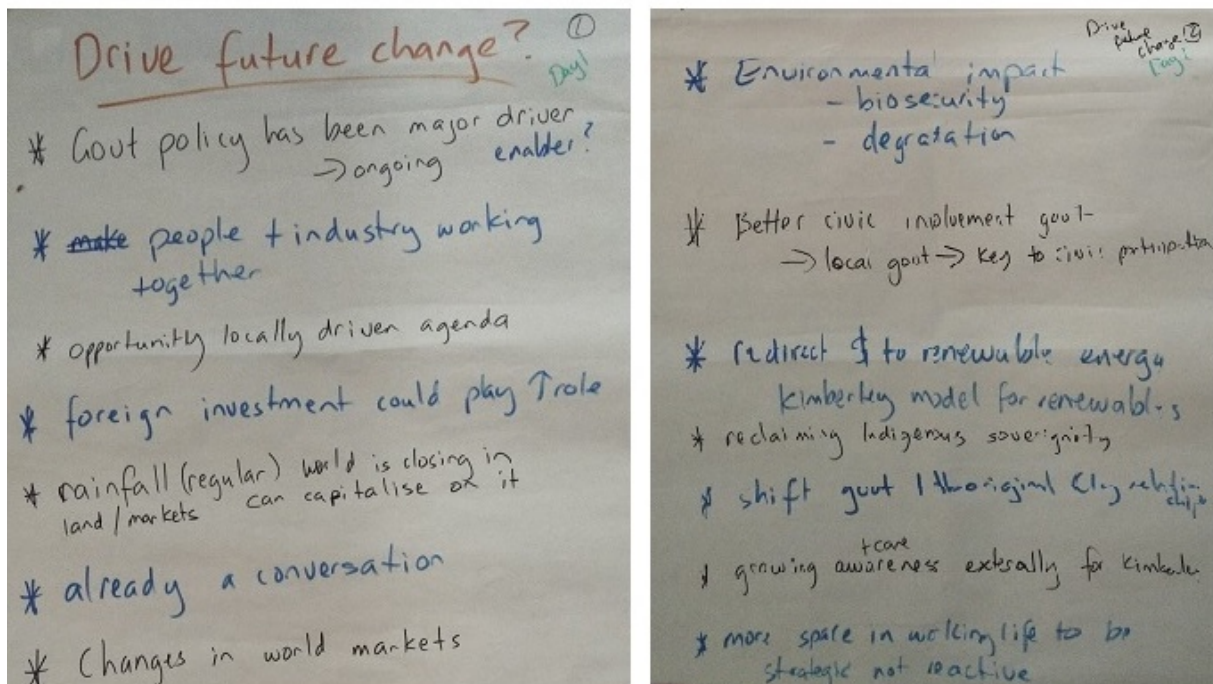 Drive future change? ①
Day 1
* Govt policy has been major driver
→ ongoing enabler?
* make people + industry working
together
* opportunity locally driven agenda
* foreign investment could play ↑ role
* rainfall (regular) world is closing in
land / markets can capitalise on it
* already a conversation
* Changes in world markets
Drive
future
change ②
Day 1
* Environmental impact
- biosecurity
- degradation
* Better civic involvement govt
→ local govt → key to civic participation
* redirect $ to renewable energy
Kimberley model for renewables
* reclaiming Indigenous soverignity
* shift govt / Aboriginal Clry relation
ship
+ care
* growing awareness extesally for Kimberley
* more space in working life to be
strategic not reactive